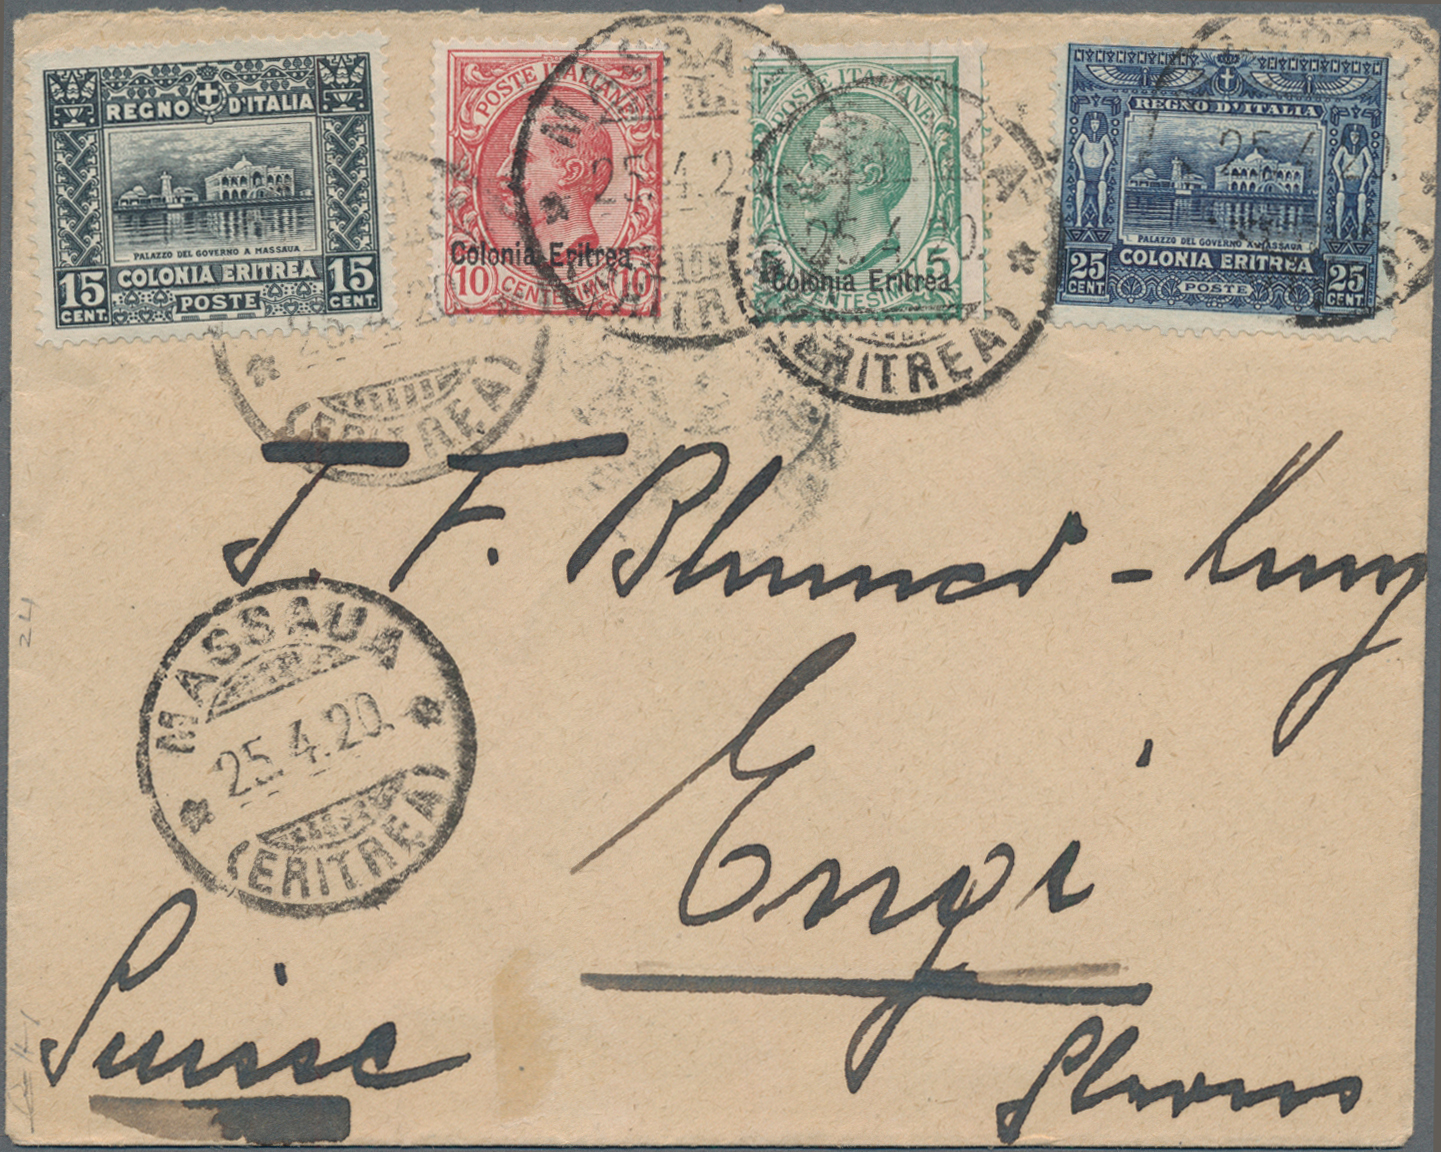 REGNO D'ITALIA
PALAZZO DEL GOVERNO A MASSAUA
15 COLONIA ERITREA 15
CENT. POSTE CENT.
POSTE ITALIANE
Colonia Eritrea
10 CENTESIMI 10
POSTE ITALIANE
Colonia Eritrea
5 CENTESIMI 5
REGNO D'ITALIA
PALAZZO DEL GOVERNO A MASSAUA
25 COLONIA ERITREA 25
CENT. POSTE CENT.
25.4.2
(ERITREA)
25.4.20.
(ERITREA)
25.4.20.
J. F. Blumer-
MASSAUA
25.4.20.
(ERITREA)
Engi
Suisse
24